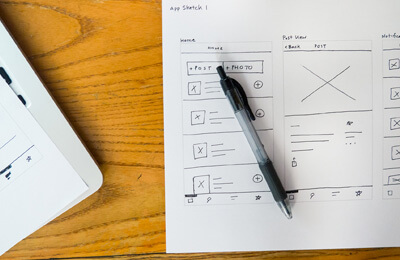 App Sketch 1
Home
HOME
+POST
+PHOTO
Post View
<Back POST
Notific